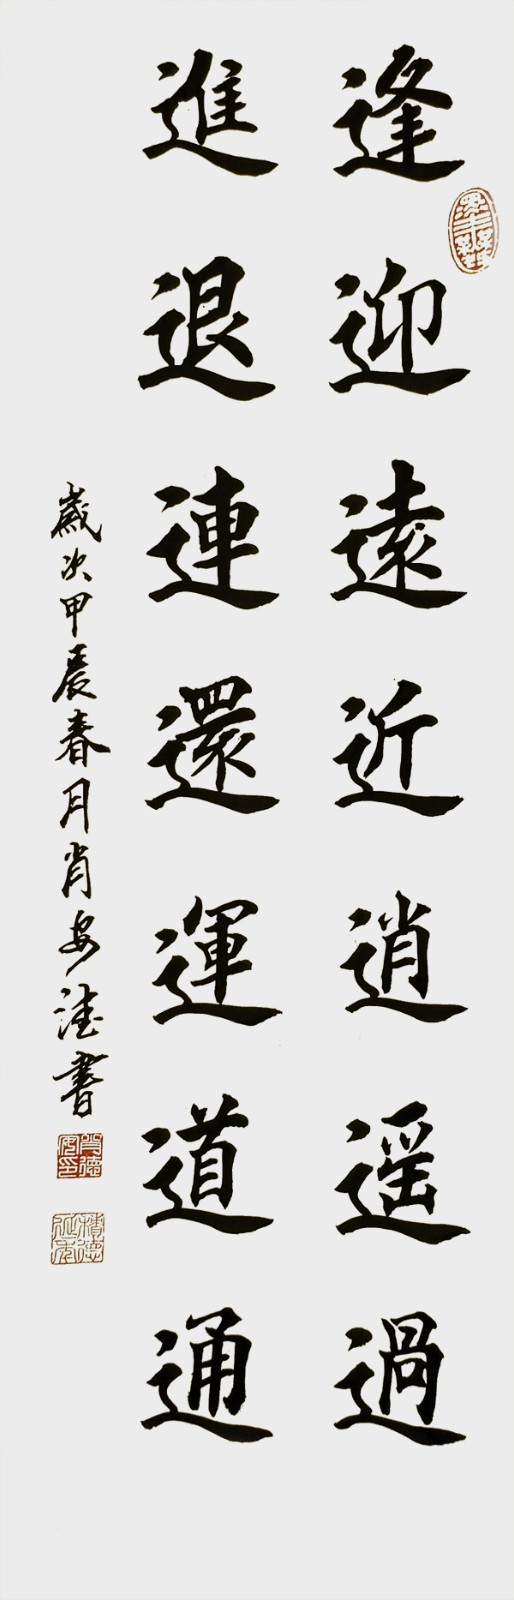 逢迎遠近逍遥過
進退連還運道通
歲次甲辰春月肖安德書